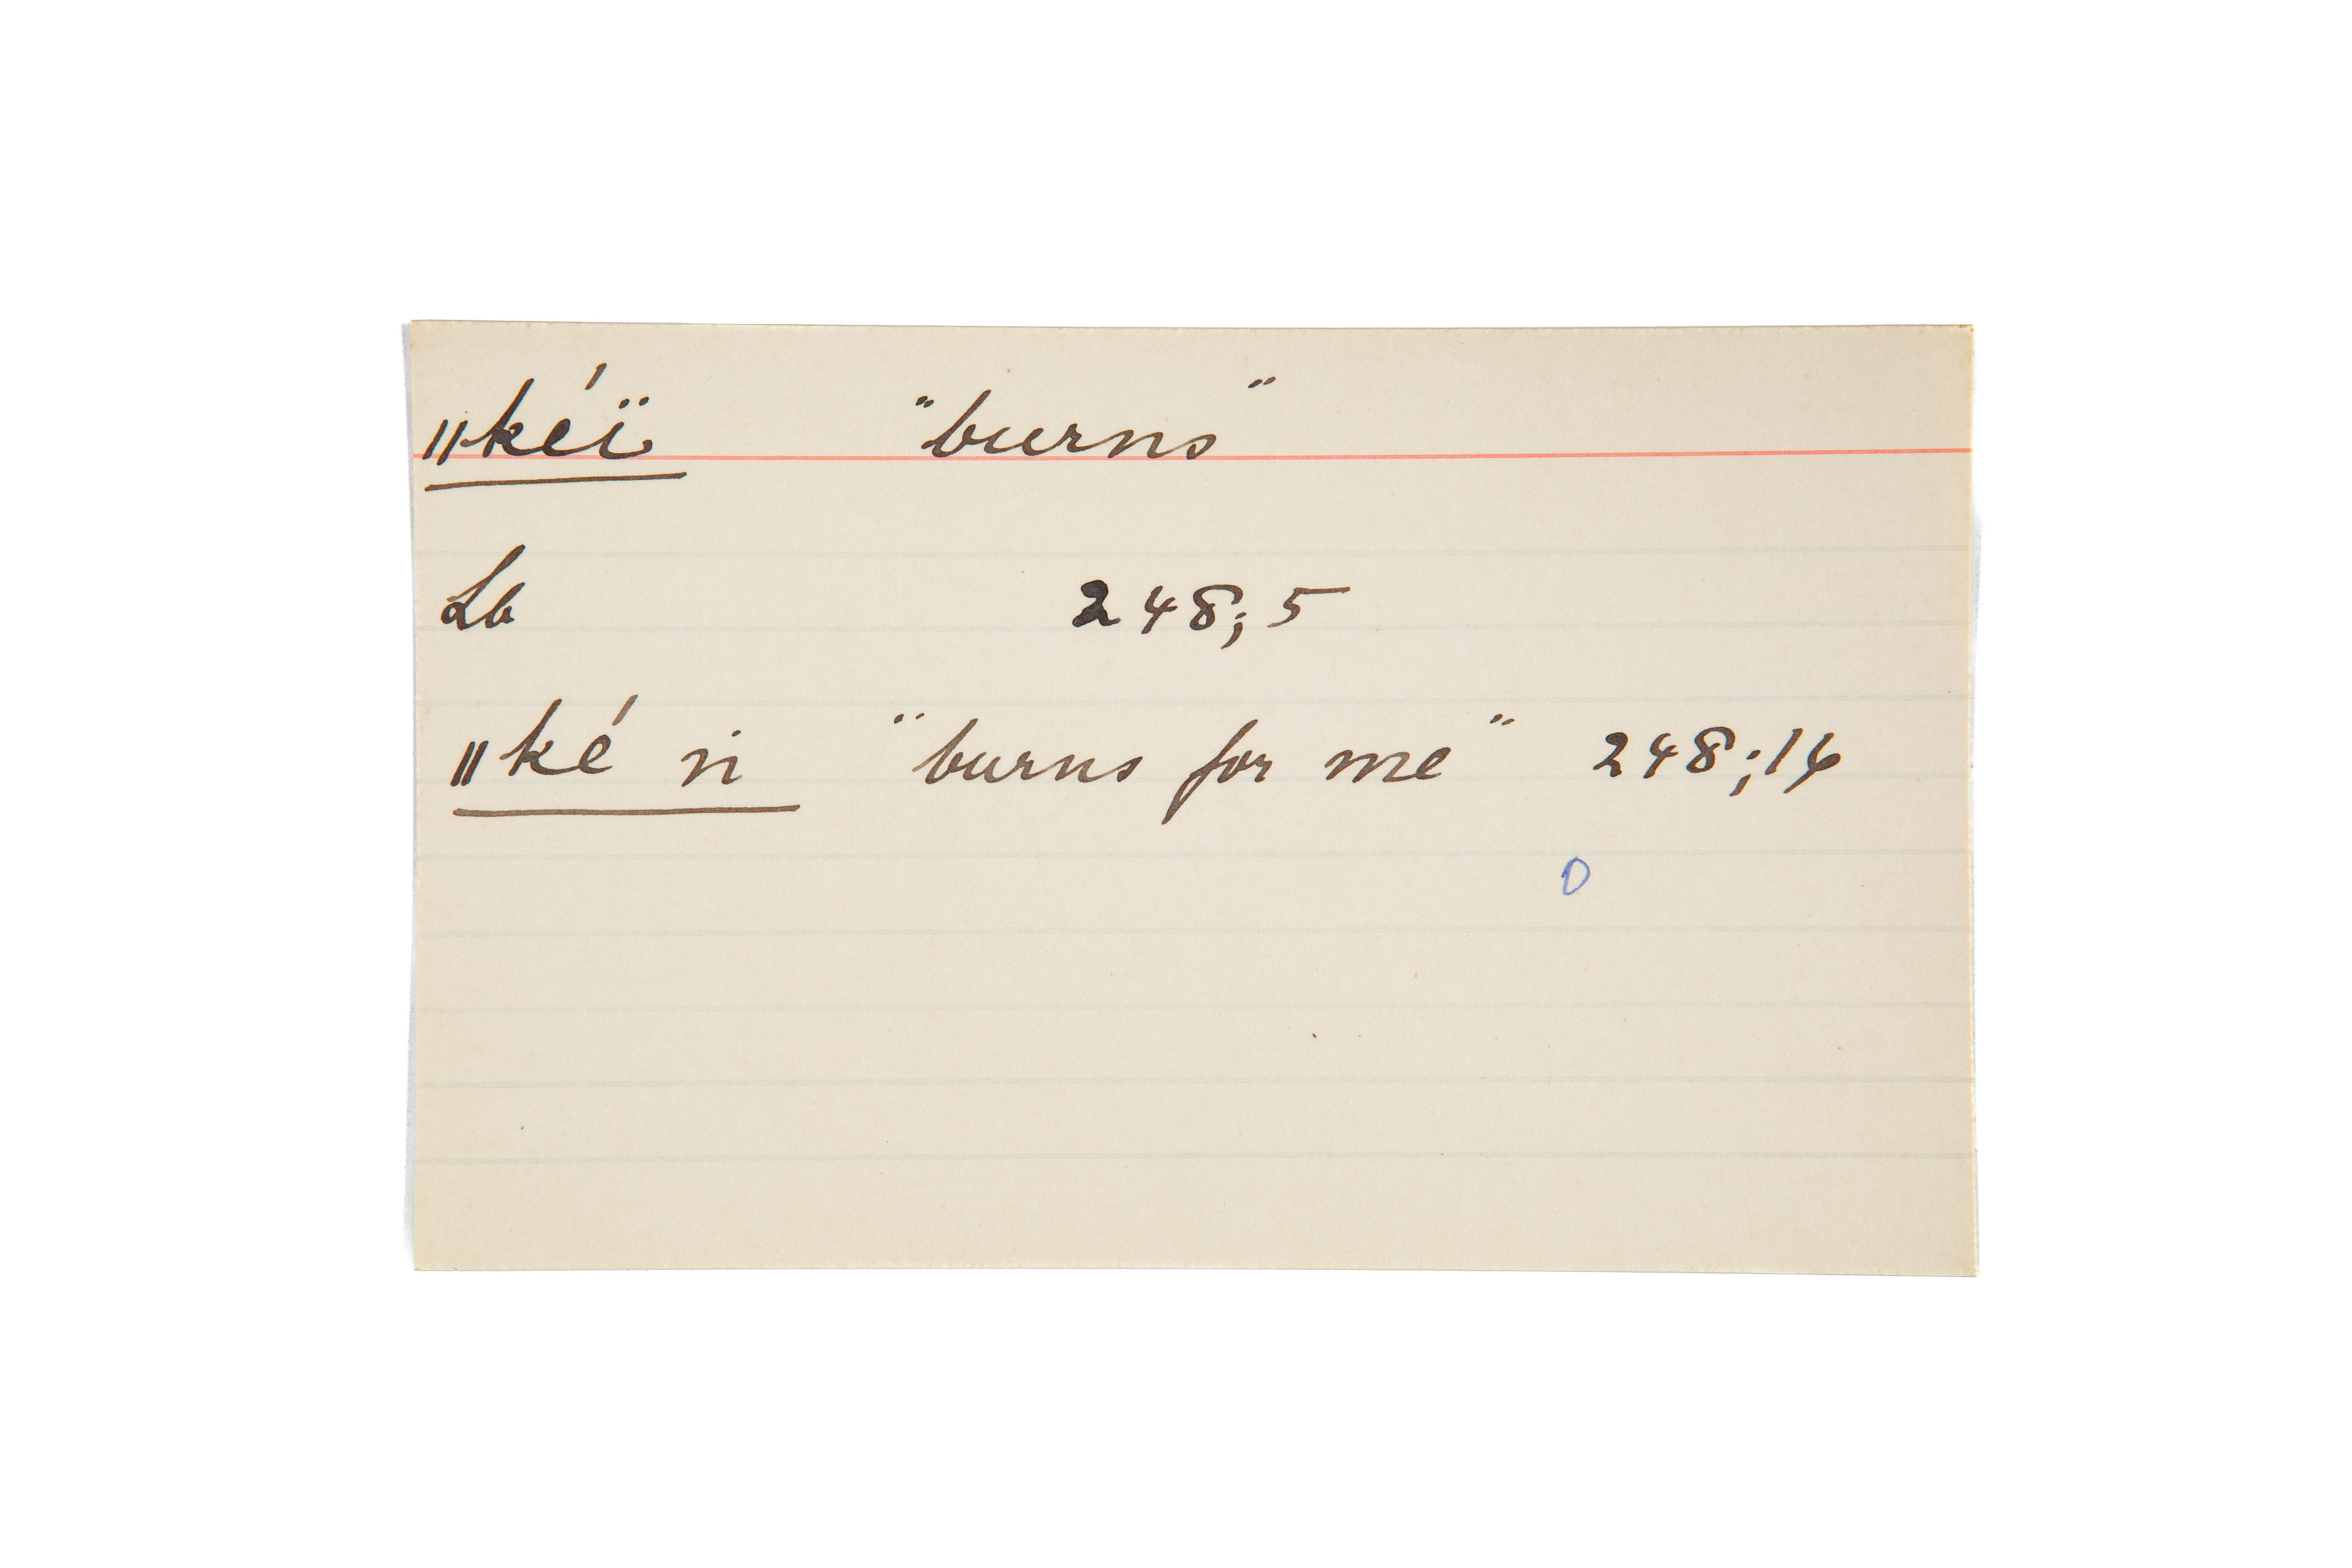 ǁkéï "burns"
Lb 248;5
ǁké n̈ "burns for me" 248;16
0